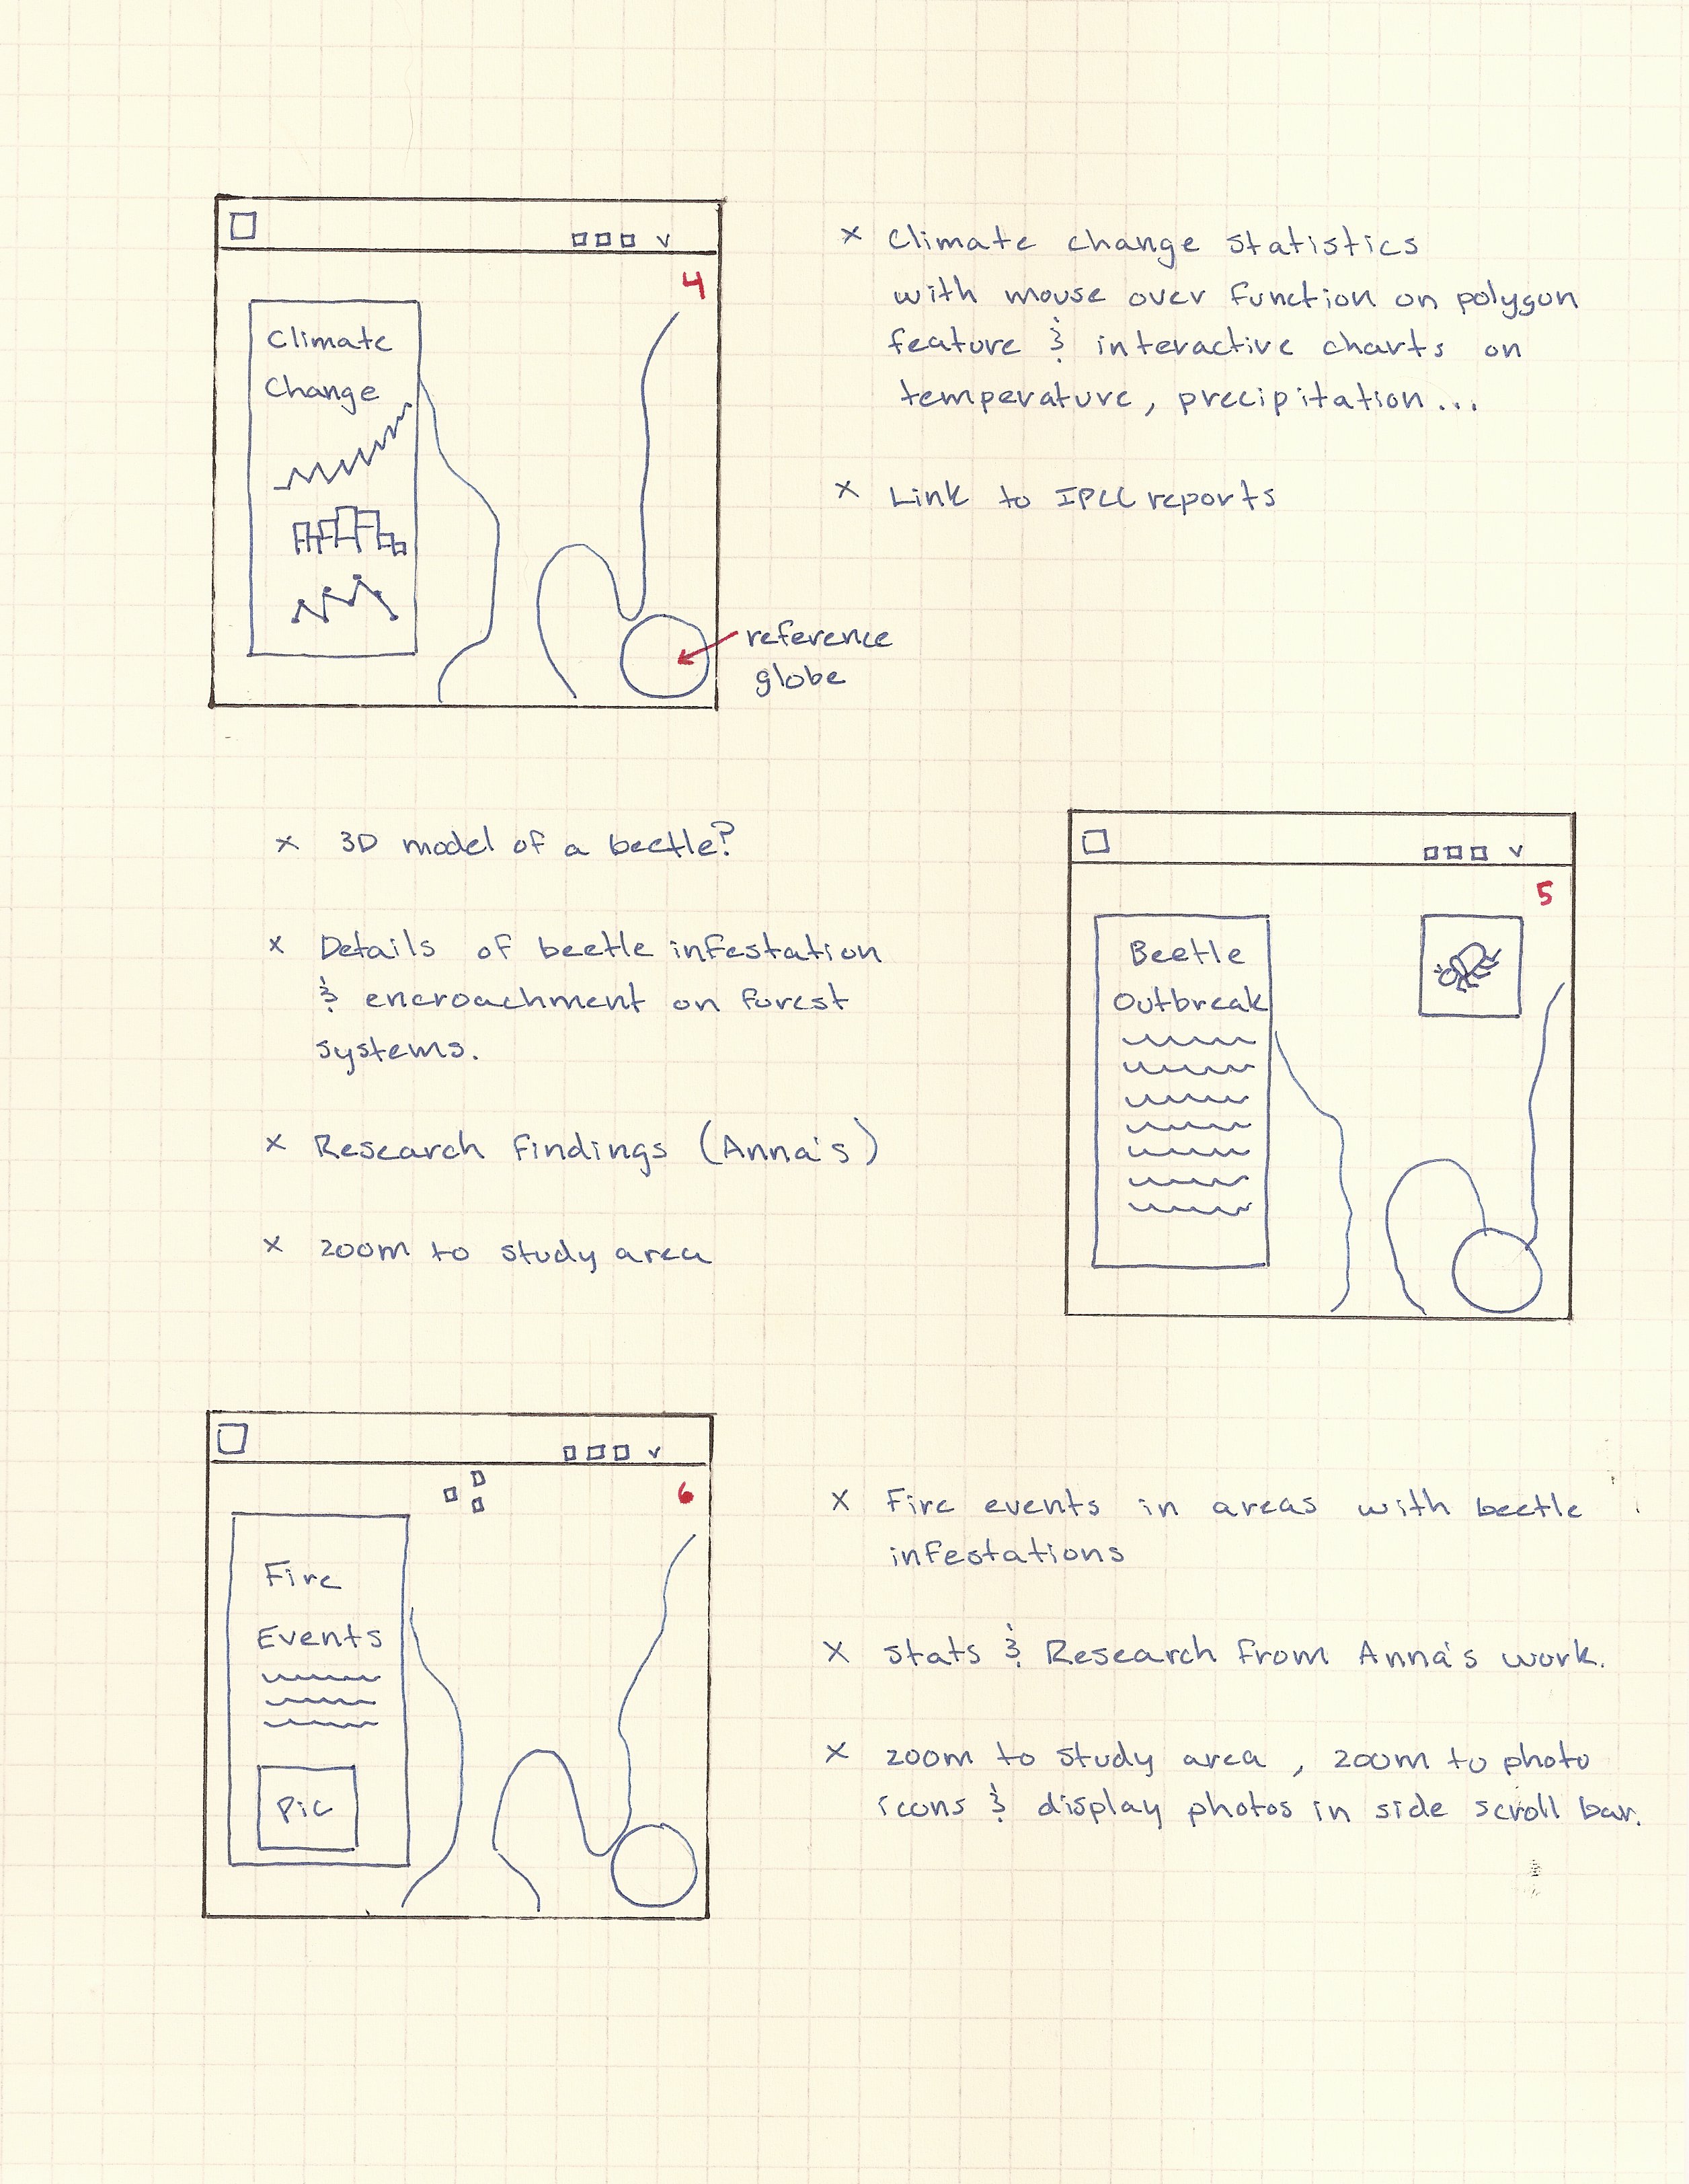 4
Climate
Change
reference
globe
x Climate change statistics
with mouse over function on polygon
feature & interactive charts on
temperature, precipitation...
x Link to IPCC reports
x 3D model of a beetle?
x Details of beetle infestation
& encroachment on forest
systems.
x Research findings (Anna's)
x zoom to study area
5
Beetle
Outbreak
6
Fire
Events
Pic
x Fire events in areas with beetle
infestations
x stats & Research from Anna's work.
x zoom to study area, zoom to photo
icons & display photos in side scroll bar.